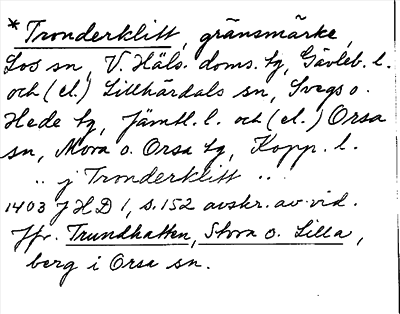 *Tronderklitt, gränsmärke,
Los sn, V. Häls. doms. tg, Gävleb. l.
och (el.) Lillhärdals sn, Svegs o.
Hede tg, Jämtl. l. och (el.) Orsa
sn, Mora o. Orsa tg, Kopp. l.
.. j Tronderklitt ..
1403 JHD 1, s. 152 avskr. av vid.
Jfr. Trundhatten, Stora o. Lilla,
berg i Orsa sn.